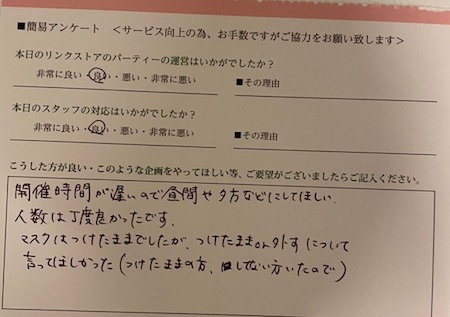 ■簡易アンケート ＜サービス向上の為、お手数ですがご協力をお願い致します＞
本日のリンクストアのパーティーの運営はいかがでしたか？
非常に良い・良い・悪い・非常に悪い ■その理由
本日のスタッフの対応はいかがでしたか？
非常に良い・良い・悪い・非常に悪い ■その理由
こうした方が良い・このような企画をやってほしい等、ご要望がございましたらご記入ください。
開催時間が遅いので昼間や夕方などにしてほしい。
人数は丁度良かったです。
マスクはつけたままでしたが、つけたままor外すについて
言ってほしかった(つけたままの方、してない方いたので)